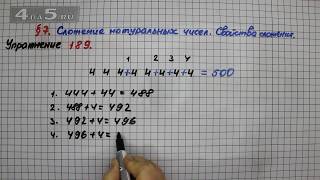 4а5.RU
§7. Сложение натуральных чисел. Свойства сложения.
Упражнение 189.
1 2 3 4
4 4 4+4 4+4+4+4 = 500
1. 444+44 = 488
2. 488+4= 492
3. 492+4= 496
4. 496+4=